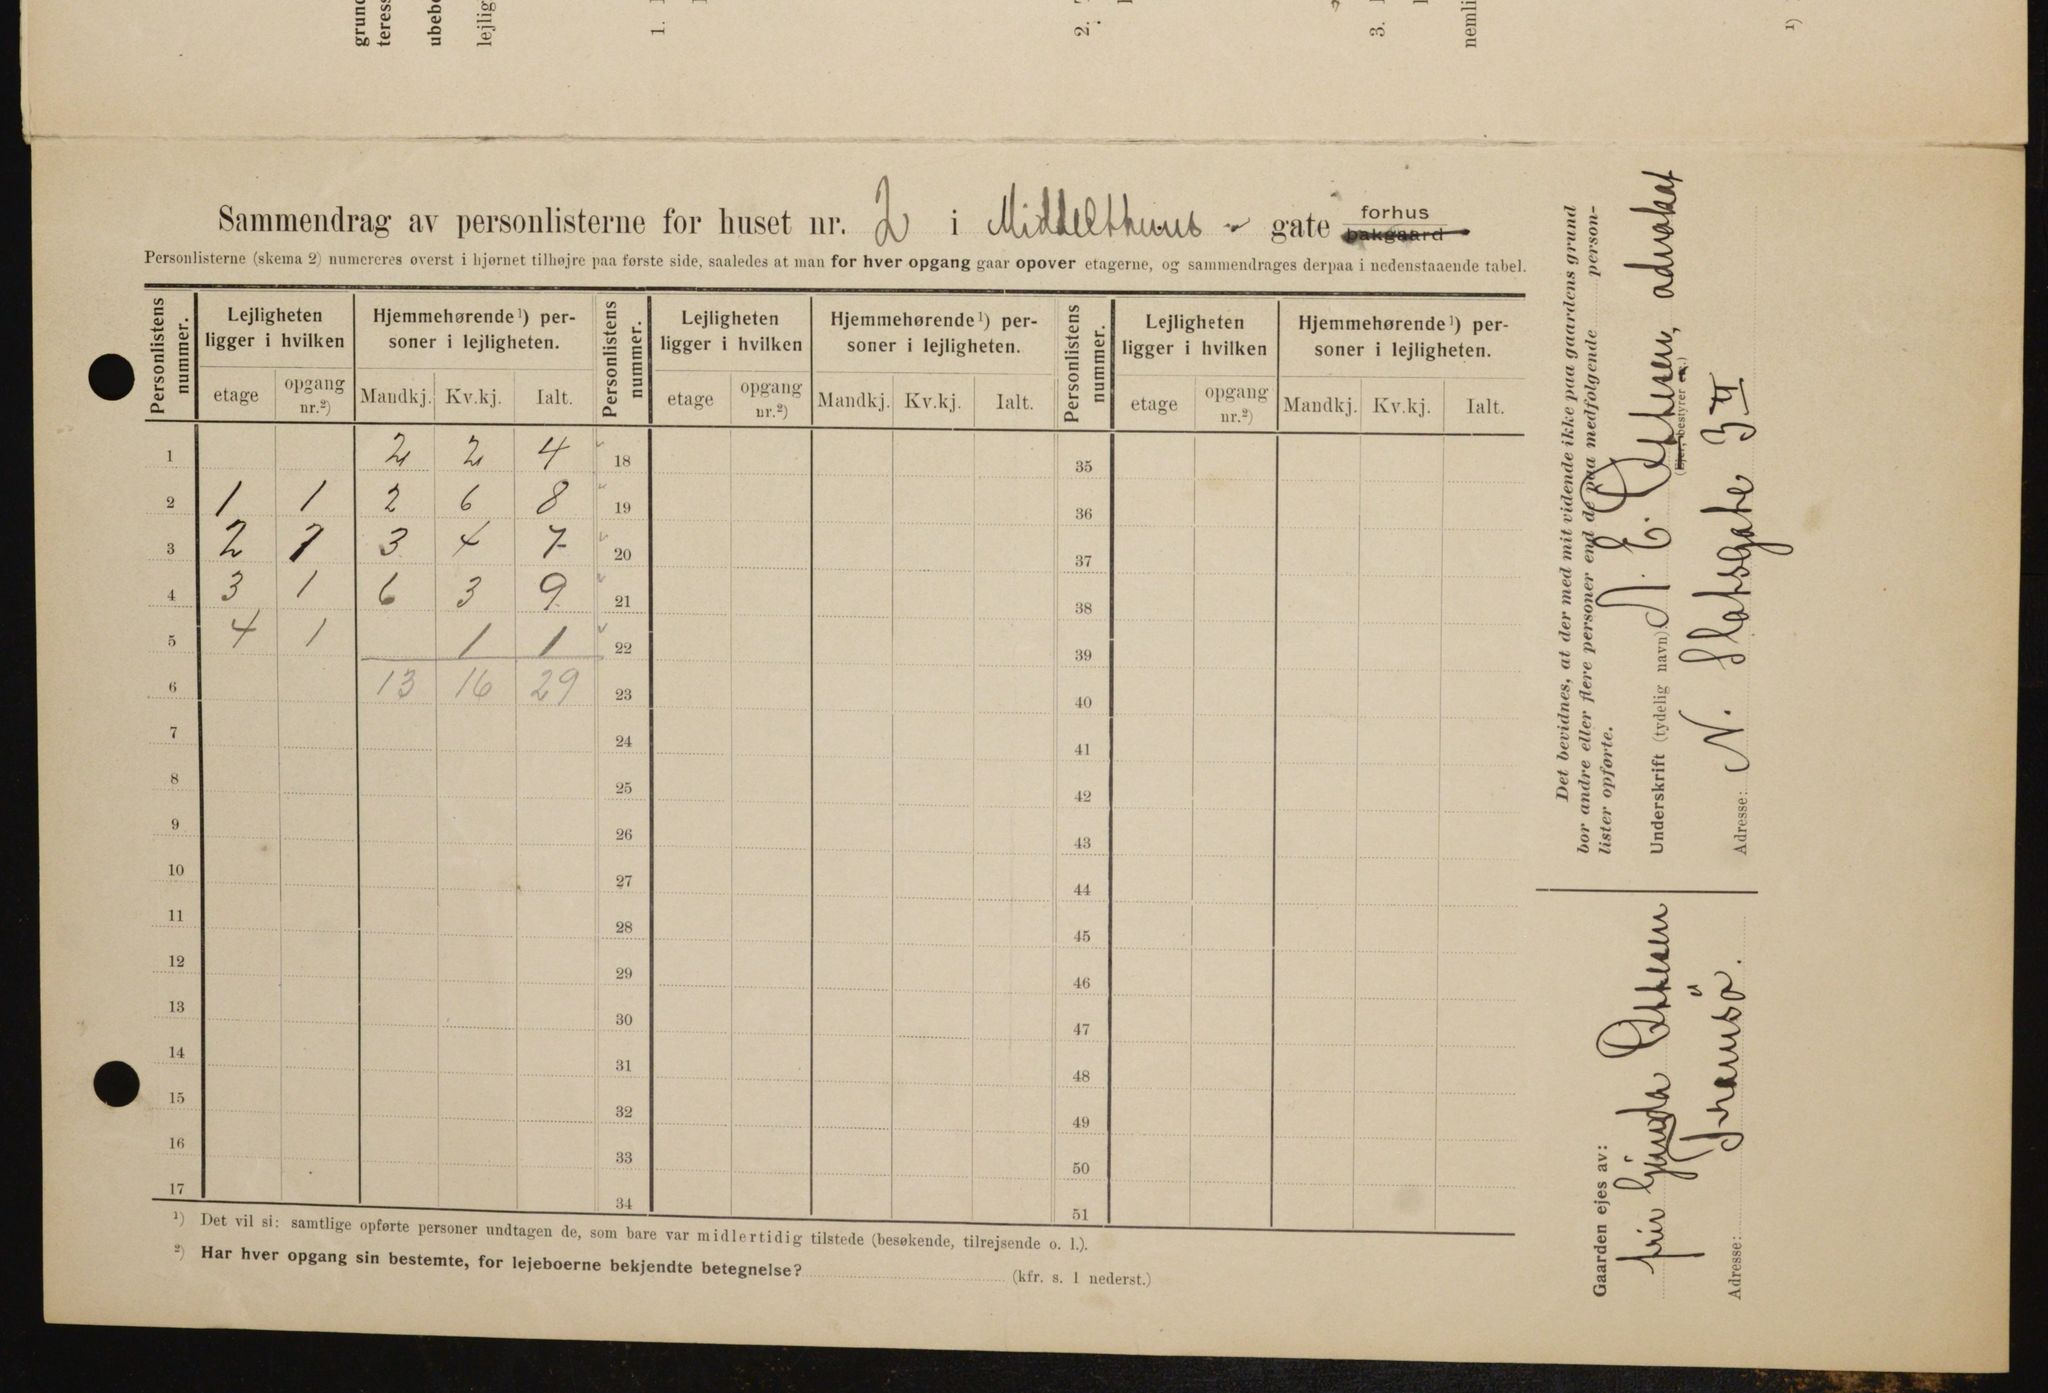 grund
teress
ubebo
lejlig
1.
2.
3.
nemli
¹)
Sammendrag av personlisterne for huset nr. 2 i Middelthuns - gate forhus bakgaard
Personlisterne (skema 2) numereres øverst i hjørnet tilhøjre paa første side, saaledes at man for hver opgang gaar opover etagerne, og sammendrages derpaa i nedenstaaende tabel.
Personlistens nummer. Lejligheten ligger i hvilken Hjemmehørende ¹) personer i lejligheten. Personlistens nummer. Lejligheten ligger i hvilken Hjemmehørende ¹) personer i lejligheten. Personlistens nummer. Lejligheten ligger i hvilken Hjemmehørende ¹) personer i lejligheten.
etage opgang nr.²) Mandkj. Kv.kj. Ialt. etage opgang nr.²) Mandkj. Kv.kj. Ialt. etage opgang nr.²) Mandkj. Kv.kj. Ialt.
1 2 2 4 18 35
2 1 1 2 6 8 19 36
3 2 1 3 4 7 20 37
4 3 1 6 3 9 21 38
5 4 1 1 1 22 39
6 13 16 29 23 40
7 24 41
8 25 42
9 26 43
10 27 44
11 28 45
12 29 46
13 30 47
14 31 48
15 32 49
16 33 50
17 34 51
¹) Det vil si: samtlige opførte personer undtagen de, som bare var midlertidig tilstede (besøkende, tilrejsende o. l.).
²) Har hver opgang sin bestemte, for lejeboerne bekjendte betegnelse? (kfr. s. 1 nederst.)
Det bevidnes, at der med mit vidende ikke paa gaardens grund
bor andre eller flere personer end de paa medfølgende person-
lister opførte.
Underskrift (tydelig navn): E. advokat
(Ejer, bestyrer etc.)
Adresse: N. Slotsgate 3 II
Gaarden ejes av:
Adresse: Tromsö.